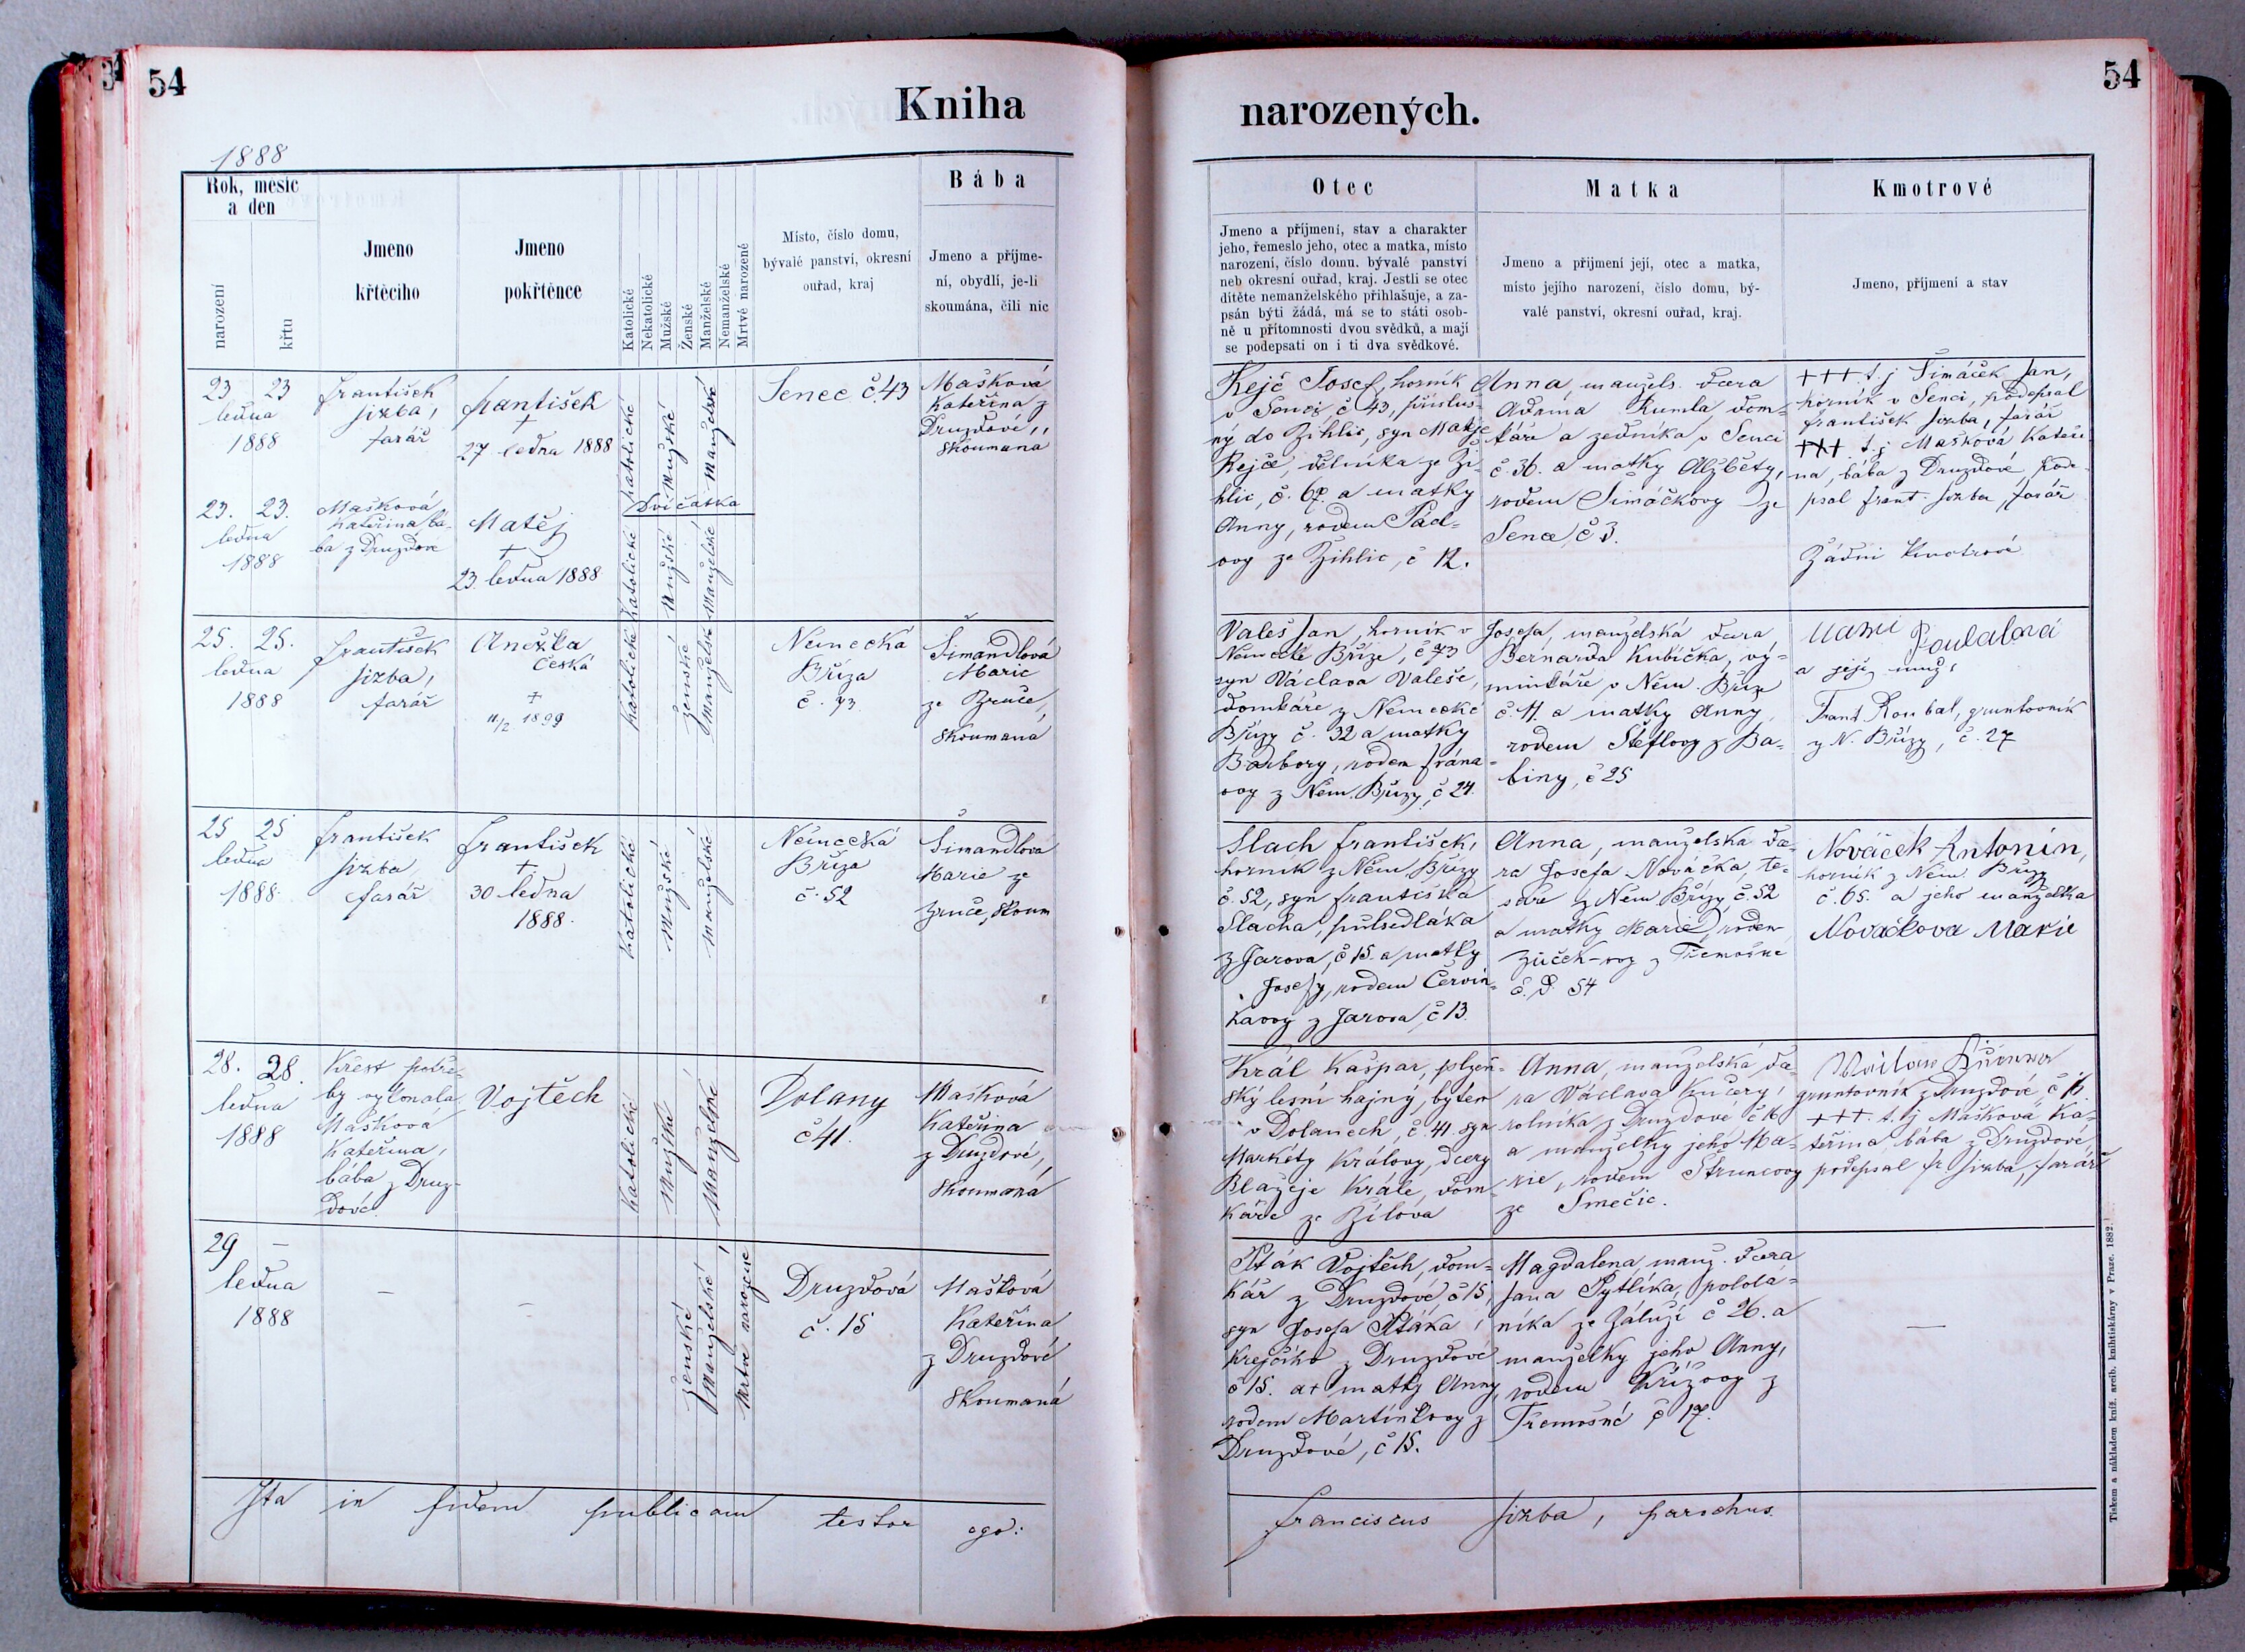 54
Kniha
1888
Rok, měsíc
a den
narození
křtu
Jmeno
křtěcího
Jmeno
pokřtěnce
Katolické
Nekatolické
Mužské
Ženské
Manželské
Nemanželské
Mrtvě narozené
Místo, číslo domu,
bývalé panství, okresní
ouřad, kraj
Bába
Jmeno a příjme-
ní, obydlí, je-li
skoumána, čili nic
23 23
ledna
1888
František
Jizba,
farář
František
+
27 ledna 1888
katolické
Mužské
Manželské
Senec č. 43
Mašková
Kateřina z
Druzdové,
skoumaná
Dvíčatka
23. 23.
ledna
1888
Mašková
Kateřina bá-
ba z Druzdové
Matěj
+
23. ledna 1888
Katolické
Mužské
Manželské
25. 25.
ledna
1888
František
Jizba,
farář
Anežka
Česká
+
11/2 1899
Katolické
ženské
Manželské
Německá
Bříza
č. 73
Šimandlová
Marie
ze Zruče,
skoumaná
25 25
ledna
1888
František
Jizba
farář
František
+
30 ledna
1888.
Katolické
Mužské
manželské
Německá
Bříza
č. 52
Šimandlová
Marie ze
Zruče, skoum
28. 28.
ledna
1888
Křest potře-
by vykonala
Mašková
Kateřina,
bába z Druz-
dové
Vojtěch
Katolické
Mužské
Manželské
Dolany
č 41.
Mašková
Kateřina
z Druzdové,
skoumaná
29 –
ledna
1888
–
–
ženské
Manželské
Mrtvě narozené
Druzdová
č. 15
Mašková
Kateřina
z Druzdové
skoumaná
Ita in fidem publicam testor ego:
54
narozených.
Otec
Jmeno a příjmení, stav a charakter
jeho, řemeslo jeho, otec a matka, místo
narození, číslo domu. bývalé panství
neb okresní ouřad, kraj. Jestli se otec
dítěte nemanželského přihlašuje, a za-
psán býti žádá, má se to státi osob-
ně u přítomnosti dvou svědků, a mají
se podepsati on i ti dva svědkové.
Matka
Jmeno a přijmení její, otec a matka,
místo jejího narození, číslo domu, bý-
valé panství, okresní ouřad, kraj.
Kmotrové
Jmeno, příjmení a stav
Kejč Josef, horník
v Senci č 43, přísluš-
ný do Žihlic, syn Matěje
Kejče, dělníka ze Ži-
hlic, č. 67. a matky
Anny, rodem Pád-
ovy ze Žihlic, č 12.
Anna, manžels. dcera
Adama Kumla, dom-
káře a zedníka v Senci
č. 36. a matky Alžběty,
rodem Šimáčkovy ze
Sence, č 3.
+++ t. j Šimáček Jan,
horník v Senci, podepsal
František Jizba, farář
+++ t. j Mašková Kateři-
na, bába z Druzdové pode-
psal Frant. Jizba, farář
Žádní Kmotrové
Valeš Jan, horník v
Německé Bříze, č 73
syn Václava Valeše,
domkáře z Německé
Břízy č. 32 a matky
Barbory, rodem Frána-
ovy z Něm. Břízy, č 24.
Josefa, manželská dcera
Bernarda Kubíčka, vý-
minkáře v Něm. Bříze
č. 11. a matky Anny
rodem Šteflovy z Ba-
biny, č 25
Roubalová
a její muž,
Frant Roubal, gruntovník
z N. Břízy, č. 27
Slach František,
horník z Něm. Břízy
č. 52, syn Františka
Slacha, půlsedláka
z Jarova, č 15. a matky
Josefy, rodem Červin-
kovy z Jarova, č 13.
Anna, manželská dce-
ra Josefa Nováčka, te-
saře z Něm. Břízy č. 52
a matky Marie, rodem
Zůček-ovy z Třemošné
č. d. 54
Nováček Antonín,
horník z Něm. Břízy
č. 65. a jeho manželka
Nováčkova Marie
Král Kašpar, plzeň-
ský lesní hajný, bytem
v Dolanech, č. 41. syn
Markéty Královy, dcery
Blažeje Krále, dom-
káře ze Bílova
Anna, manželská dce-
ra Václava Kučery,
rolníka z Druzdové č 16.
a manželky jeho Ma-
rie, rodem Štruncovy
ze Smečic.
gruntovník z Druzdové, č 16.
+++. t. j Mašková Ka-
teřina, bába z Druzdové,
podepsal Fr Jizba, farář
Pták Vojtěch, dom-
kář z Druzdové č 15,
syn Josefa Ptáka,
Krejčího z Druzdové
č 15. a + matky Anny,
rodem Martínkovy z
Druzdové, č 15.
Magdalena, manž. dcera
Jana Pytlíka, pololá-
níka ze Záluží č 26. a
manželky jeho Anny,
rodem Křížovy z
Třemošné č 17.
–
Franciscus Jizba, parochus.
Tiskem a nákladem kníž. arcib. knihtiskárny v Praze. 1882.